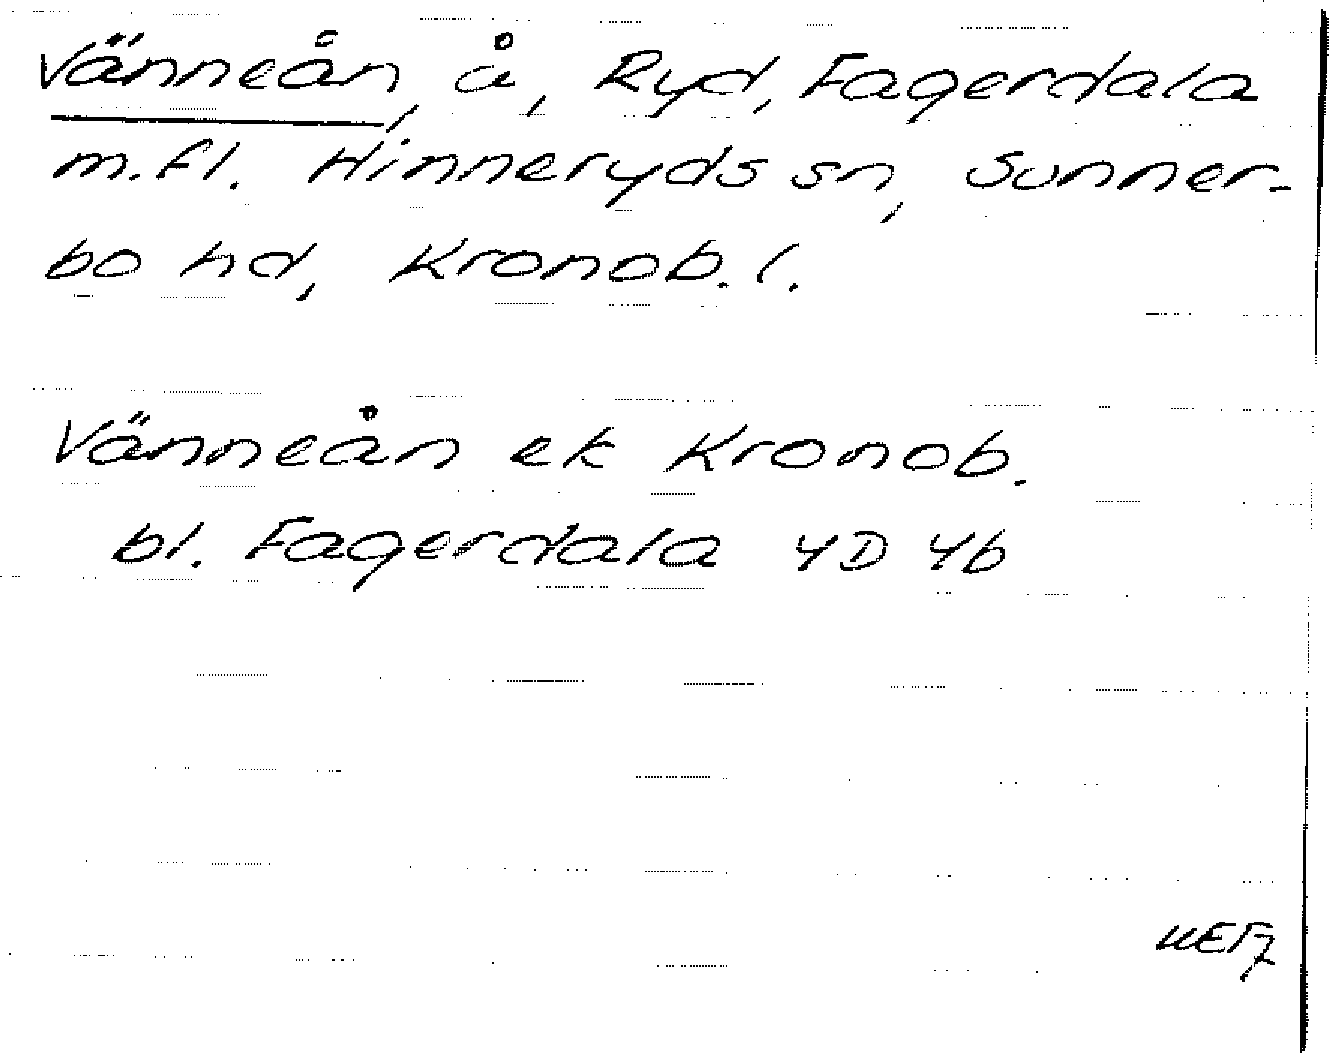 Vänneån, å, Ryd, Fagerdala
m.fl. Hinneryds sn, Sunner-
bo hd, Kronob. l.
Vänneån ek Kronob.
bl. Fagerdala 4D 4b